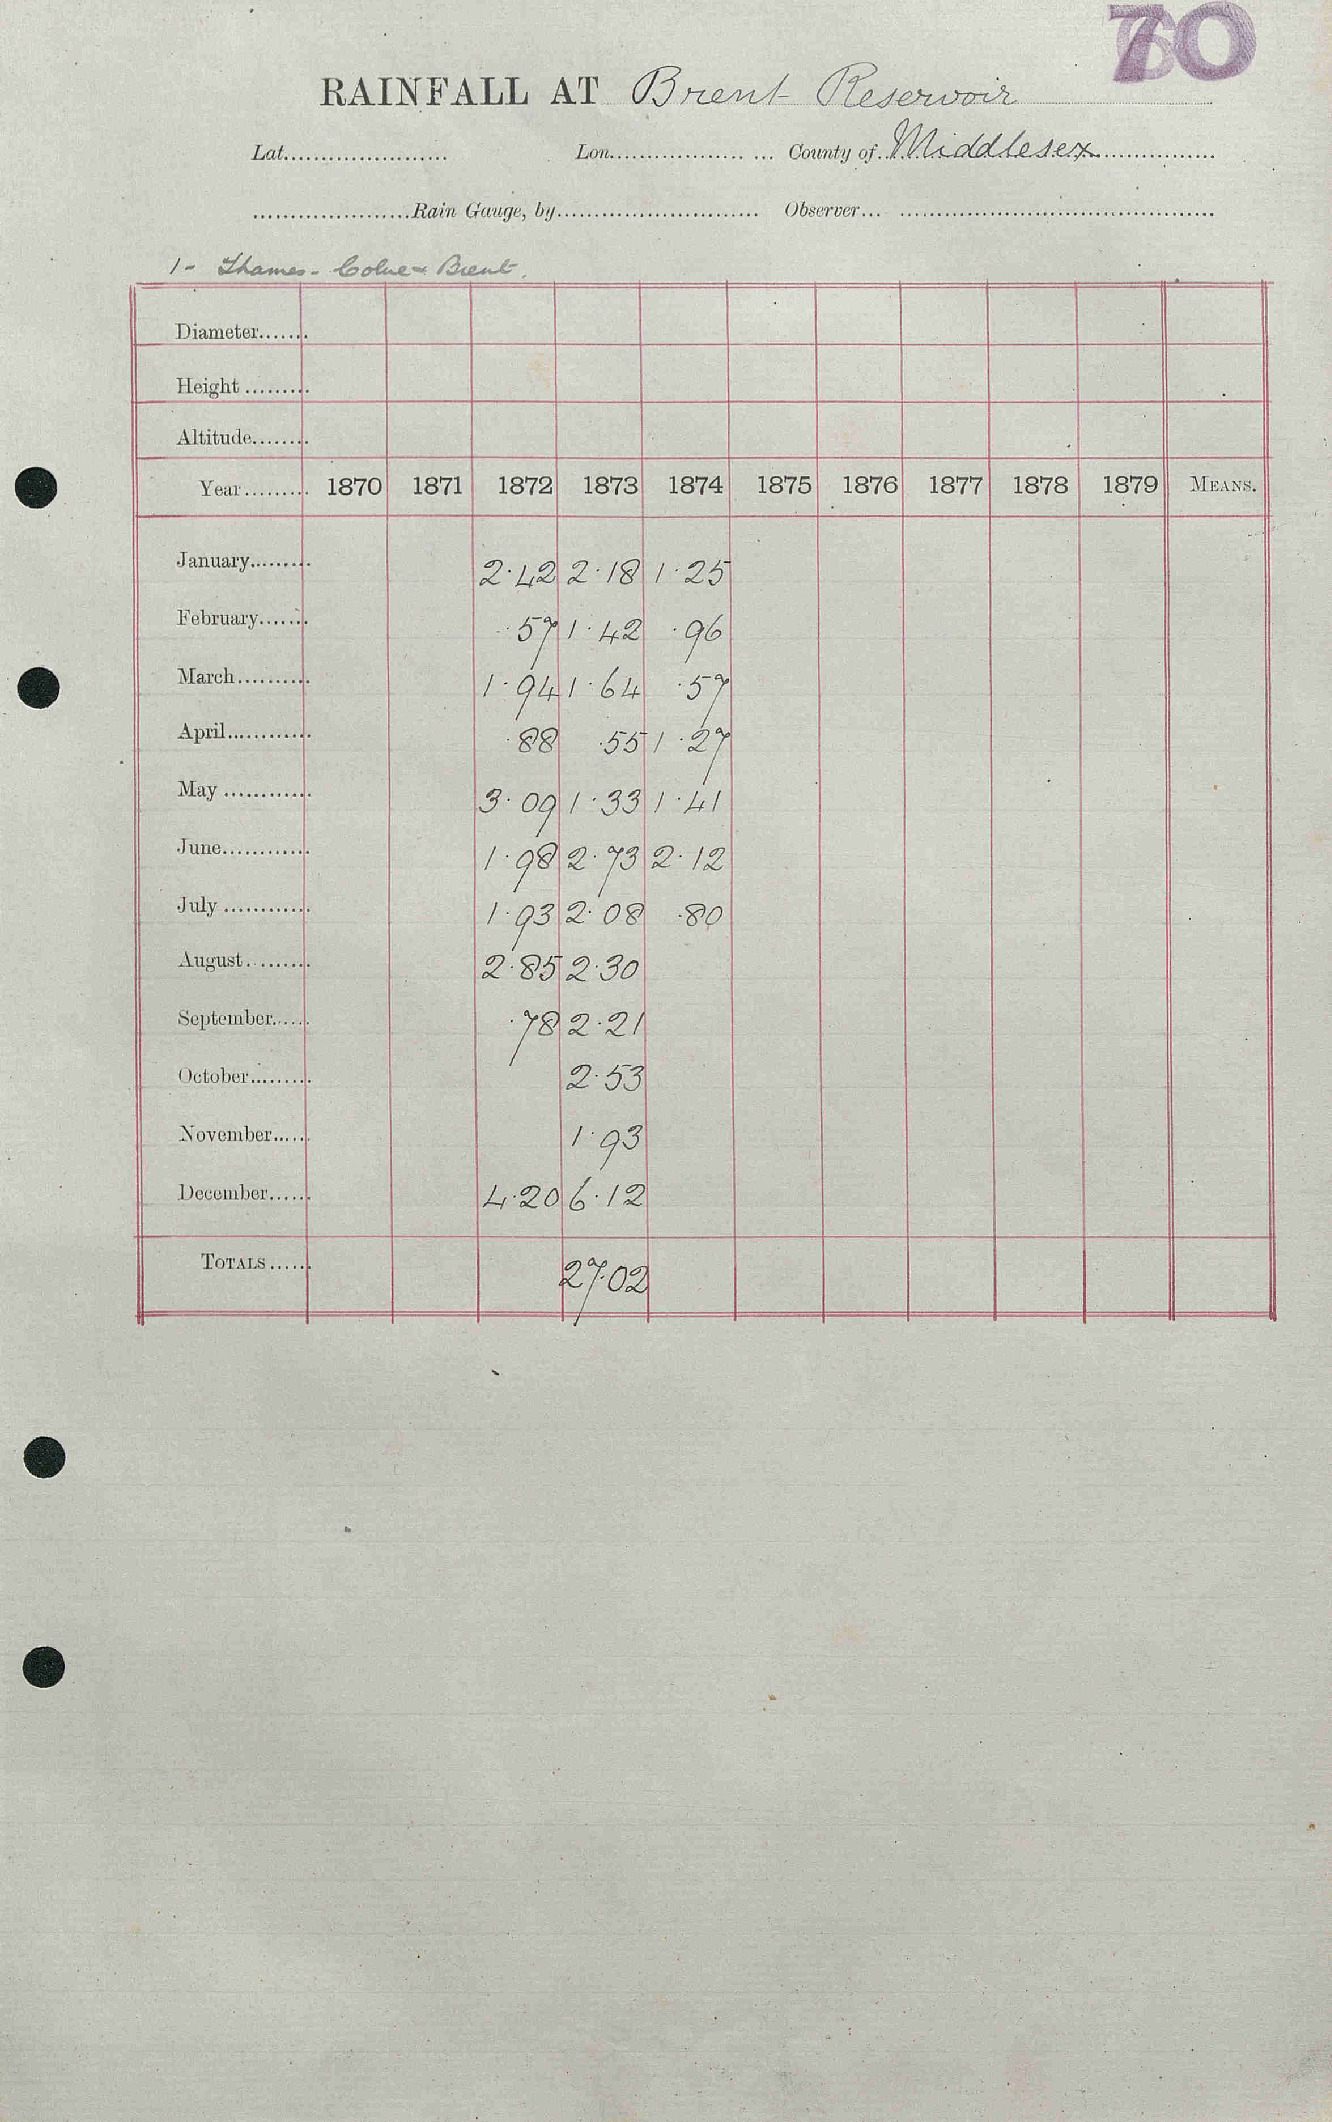 70
RAINFALL AT Brent Reservoir
Lat...................... Lon...................... County of Middlesex
.....................Rain Gauge, by........................... Observer...
1- Thames - Colne & Brent.
Diameter.......
Height.........
Altitude........
Year......... 1870 1871 1872 1873 1874 1875 1876 1877 1878 1879 MEANS.
January......... 2.42 2.18 1.25
February....... .57 1.42 .96
March.......... 1.94 1.64 .57
April............ .88 .55 1.27
May............ 3.09 1.33 1.41
June............ 1.98 2.73 2.12
July............ 1.93 2.08 .80
August......... 2.85 2.30
September...... .78 2.21
October......... 2.53
November...... 1.93
December...... 4.20 6.12
TOTALS...... 27.02